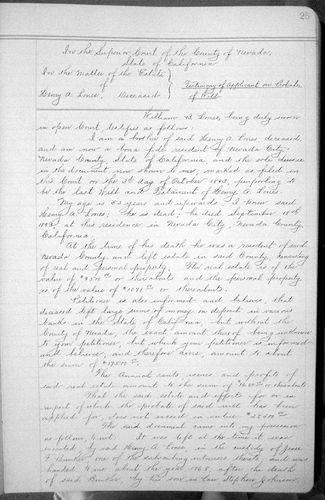 25
In the Superior Court of the County of Nevada,
State of California
In the Matter of the Estate
of
Henry A. Lowe, Deceased
Testimony of Applicant on Probate
of Will
William B. Lowe, being duly sworn
in open Court, testifies as follows:
I am a brother of said Henry A. Lowe, deceased,
and am now a bona fide resident of Nevada City
Nevada County, State of California, and the sole devisee
in the document now shown me, marked as filed in
this Court on the day of October 1893, purporting to
be the last Will and Testament of Henry A. Lowe.
My age is 53 years and upwards I knew said
Henry A. Lowe; he is dead; he died September 18th
1893, at his residence in Nevada City, Nevada County,
California
At the time of his death he was a resident of said
Nevada County, and left estate in said County, consisting
of real and personal property. The real estate is of the
value of or thereabouts and the personal property
is of the value of or thereabouts.
Petitioner is also informed and believes, that
deceased left large sums of money on deposit in various
banks in the State of California, but without the
County of Nevada, the exact amount thereof being unknown
to your petitioner, but which your petitioner is informed
and believes, and therefore avers, amount to about
the sum of
The annual rents issues and profits of
said real estate amount to the sum of or thereabouts
That the said estate and effects for or in
respect of which the probate of said will has been
applied for, does not exceed in value
The said document came into my possession
as follows, to wit: It was left at the time it was
executed, by said Henry A. Lowe, in the custody of Jesse
S. one of the subscribing witnesses thereto and was
handed to me about the year 1868, after the death
of said by his son in law Stephen Johnson